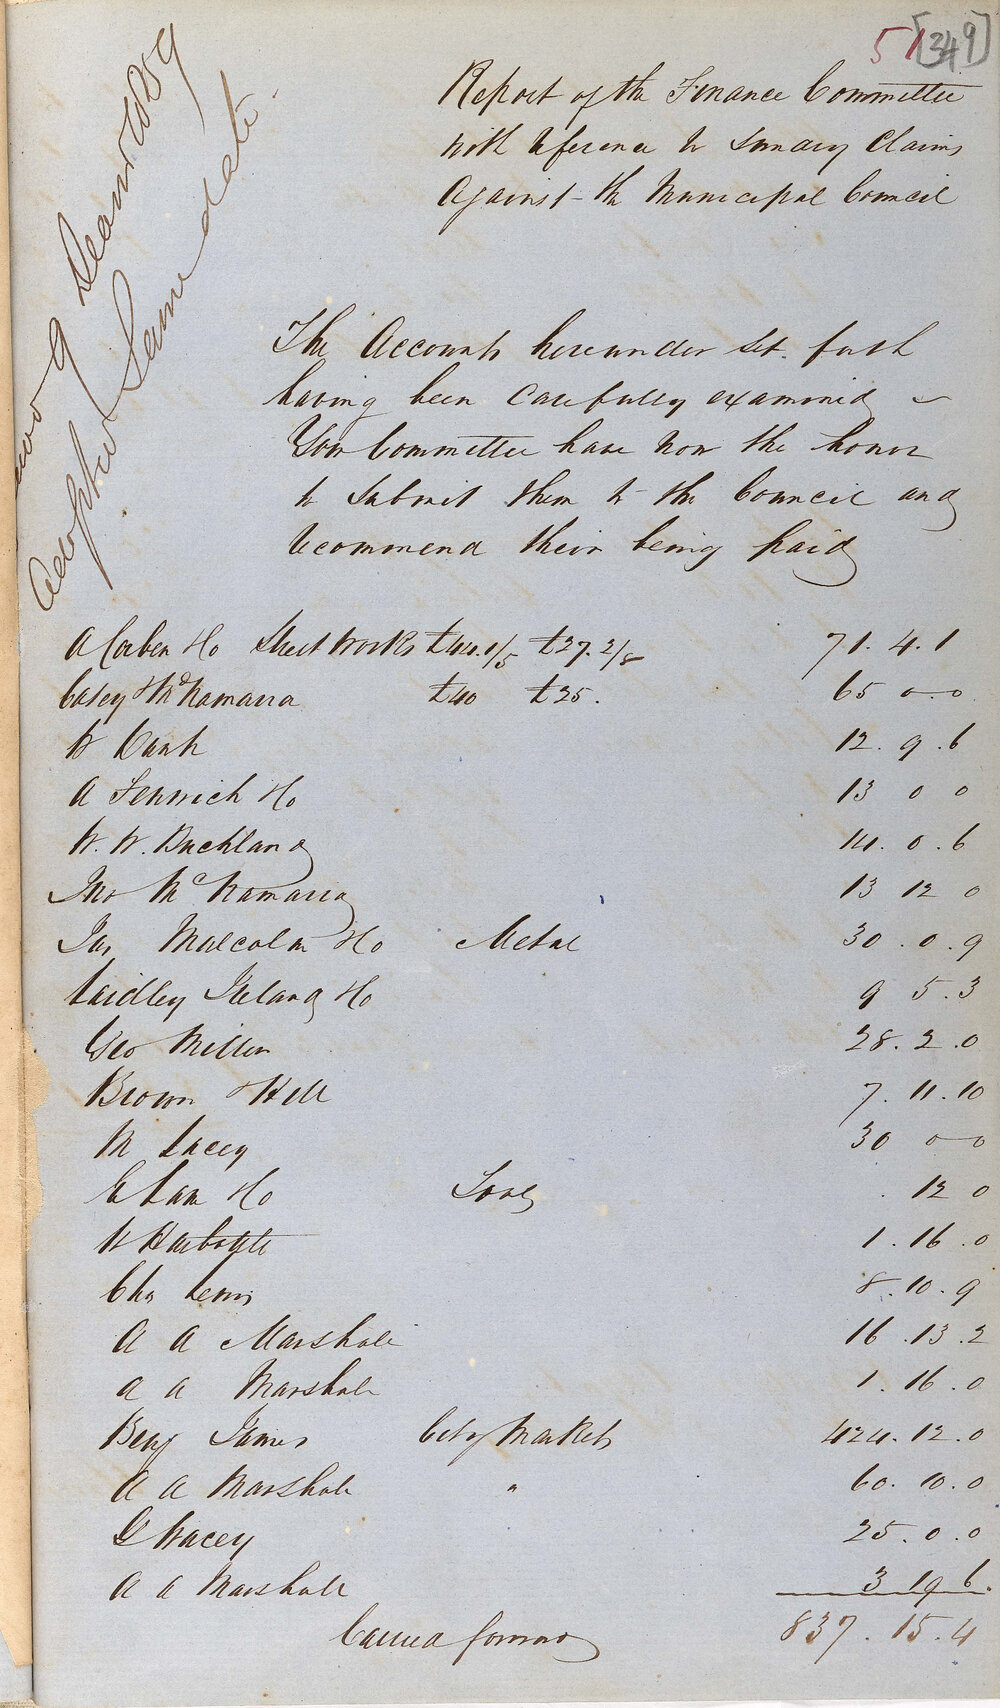 51 [349]
Report of the Finance Committee
with reference to Sundry Claims
Against the Municipal Council
9
Adopted Same date
The Accounts hereunder Set forth
having been Carefully examined
Your Committee have now the honor
to Submit them to the Council and
recommend their being paid
A Corben & Co Street Works £44.1/5 £27.2/8 71.4.1
Casey & McNamara £40 £25. 65 0-0
W Cank 12.9.6
A Fenwick & Co 13 0 0
W. W. Buckland 14.0.6
Jno McNamara 13 12 0
Jas Malcolm & Co Metal 30.0.9
Laidley Ireland & Co 9 5.3
Geo Miller 28.2.0
Brown & Hill 7.11.10
M Lacey 30 0-0
E Lam & Co 12 0
W Harbottle 1.16.0
Chs Lewis 8.10.9
A A Marshall 16.13.2
A A Marshall 1.16.0
Benj James City Markets 424.12.0
A A Marshall " 60.10.0
G Wacey 25.0.0
A A Marshall 3 19 6.
Carried forward 837.15.4